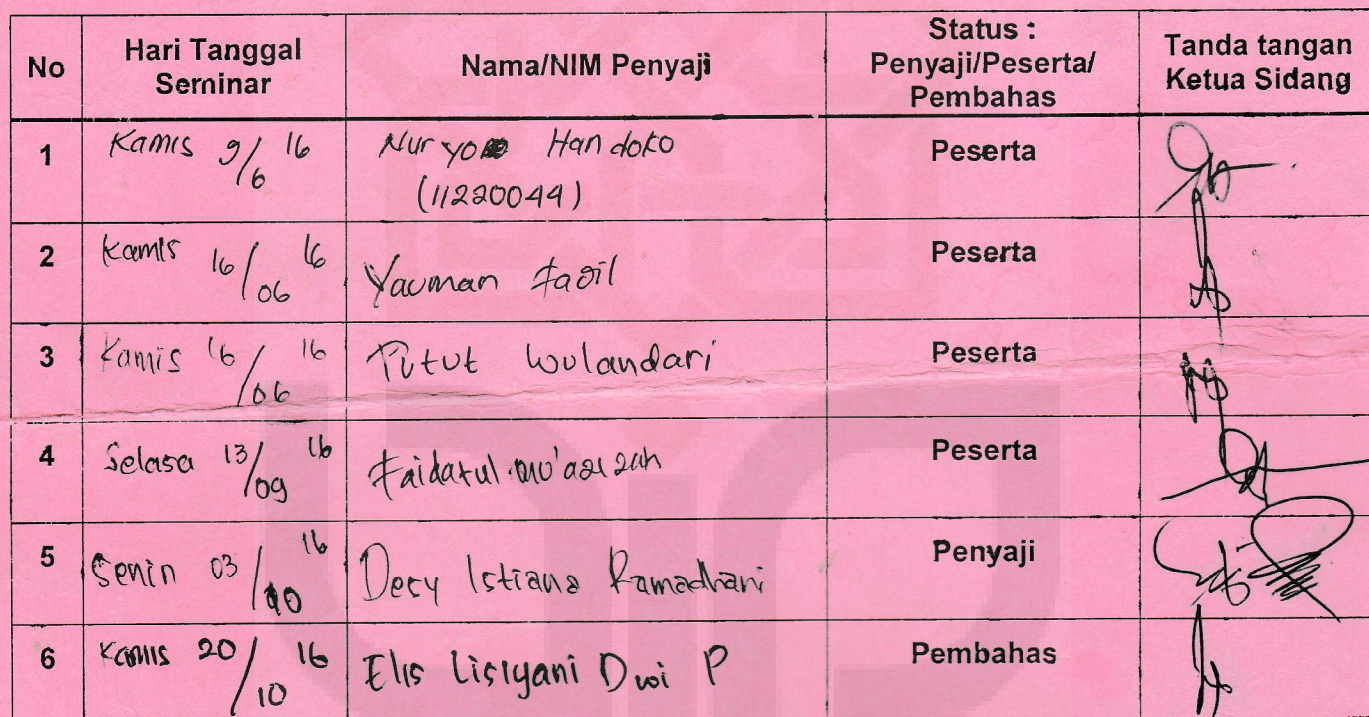 No
Hari Tanggal
Seminar
Nama/NIM Penyaji
Status :
Penyaji/Peserta/
Pembahas
Tanda tangan
Ketua Sidang
1
Kamis 9/6 16
Nuryo Handoko
(11220044)
Peserta
2
Kamis 16/06 16
Yauman
Peserta
3
Kamis 16/06 16
Putut Wulandari
Peserta
4
Selasa 13/09 16
Faidatul
Peserta
5
Senin 03/10 16
Istiana Ramadhani
Penyaji
6
Kamis 20/10 16
Elis Lisiyani Dwi P
Pembahas